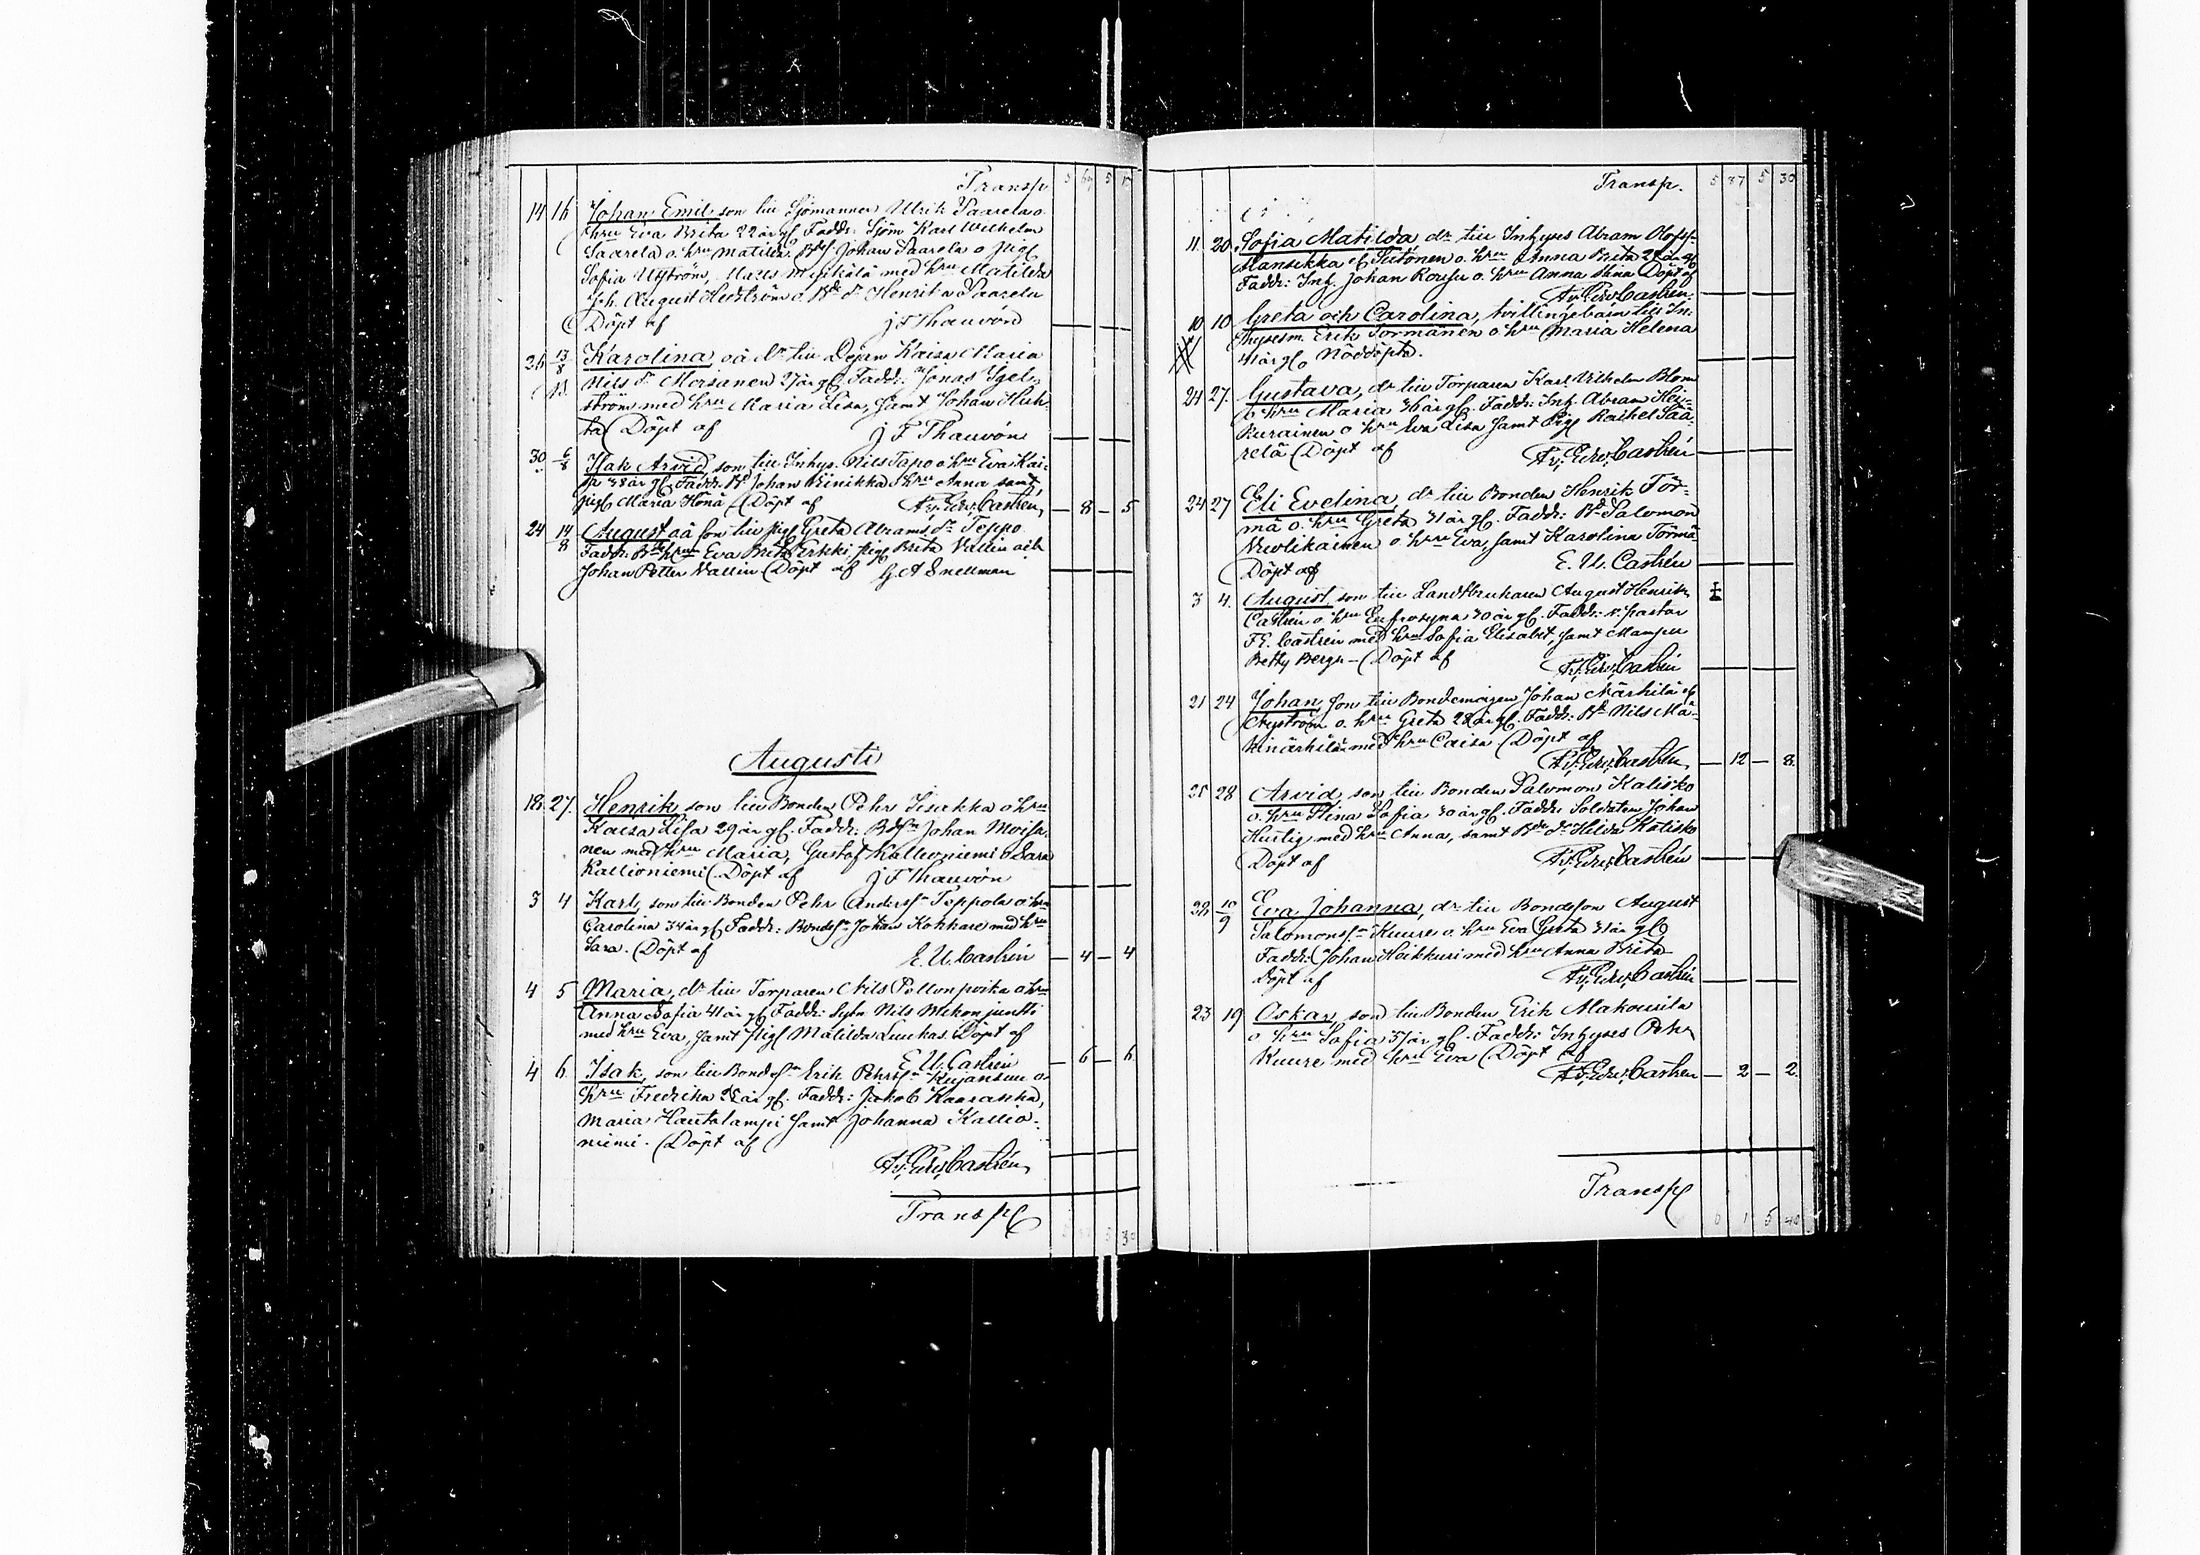 Transp
14 16 Johan Emil, son till Sjömannen Ulrik Saarela o
hru Eva Brita 22 år gl. Faddr: Sjöm Karl Wilhelm
Saarela o. hru Matilda, Johan Saarela o pig
Sofia, med hru Matilda
Joh. August Hedström o. Henrika Saarela
Döpt af J F Thauvón
26 13/8 Karolina, oä dr till Kaisa Maria
Nils dr Moisanen 27 år gl. Faddr: Jonas Ygel-
ström med hru Maria Lisa, samt Johan Huh-
ta (Döpt af J F Thauvón
30 6/8 Isak Arvid, son till Inhys. Nils Tapo o hru Eva Kai-
sa 38 år gl. Faddr. Johan Riinikka o hru Anna samt
pig Maria (Döpt af Fr. Edv. Castrén — 8 — 5
24 14/8 August oä son till pig Greta Abramsdr Teppo
Faddr: Eva Brita Erkki, pig Brita Vallin och
Johan Petter Vallin (Döpt af G. A Snellman
Augusti
18. 27. Henrik, son till Bonden Pehr Iisakka o hru
Kaisa Lisa 29 år gl. Faddr: Johan Moisa-
nen med hru Maria, Gustaf Kallioniemi o Sara
Kallioniemi (Döpt af J F Thauvón
3 4 Karl, son till Bonden Pehr Anderssn Teppola o hru
Carolina 34 år gl. Faddr: Bondesn Johan Kokkare med hru
Sara. (Döpt af E. U. Castrén — 4 — 4
4 5 Maria, dr till Torparen Nils o hru
Anna Sofia 41 år gl. Faddr: Nils
med hru Eva, samt pig Matilda Luukas. Döpt af
E. U. Castrén — 6 — 6
4 6 Isak, son till Bondesn Erik Pehrssn Kujansuu o
hru Fredrika år gl. Faddr: Jakob Kaaranka,
Maria Hautalampi samt Johanna Kallio-
niemi. (Döpt af
Fr. Edv. Castrén
Transp
Transp. 5 87 5 30
11. 20. Sofia Matilda, dr till Inhyses Abram Olofs-
Mansikka o. hru Anna Brita år gl
Faddr: Inh. Johan o. hru Anna Stina Döpt af
Fr. Edv. Castrén
10 10 Greta och Carolina, tvillingebarn till In-
hysesm. Erik Törmänen o hru Maria Helena
41 år gl. Nöddöpta.
24 27. Gustava, dr till Torparen Karl Vilhelm Blom
o hru Maria 36 år gl. Faddr: Inh. Abram
Kurainen o hru Eva Lisa samt Pig Rachel Sää-
relä (Döpt af Fr. Edv. Castrén
24 27 Eli Evelina, dr till Bonden Henrik Tör-
mä o. hru Greta 31 år gl. Faddr: Salomon
Nuolikainen o hru Eva, samt Karolina Törmä
Döpt af E. U. Castrén
3 4. August, son till Landtbrukaren August Henrik
Castrén o hru Eufrosyna 30 år gl. Faddr: v. pastor
F. E. Castrén med hru Sofia Elisabet, samt Mamsell
Betty Bergh — (Döpt af Fr. Edv. Castrén
21 24 Johan, son till Bondemågen Johan Märkilä el
Nyström o. hru Greta 28 år gl. Faddr: Nils Mä-
med hru Caisa (Döpt af
Fr. Edv. Castrén — 12 — 8.
25 28 Arvid, son till Bonden Salomon Kalisko
o. hru Stina Sofia 30 år gl. Faddr: Soldaten Johan
Hurtig med hru Anna, samt Hilda Kalisko
Döpt af Fr. Edv. Castrén
28 10/9 Eva Johanna, dr till Bondeson August
Salomonssn Kuure o. hru Eva Greta 31 år gl
Faddr: Johan Heikkuri med hru Anna Brita
Döpt af Fr. Edv. Castrén
23 19 Oskar, son till Bonden Erik Makonila
o hru Sofia 37 år gl. Faddr: Inhyses Pehr
Kuure med hru Eva (Döpt af
Fr. Edv. Castrén — 2 — 2.
Transp